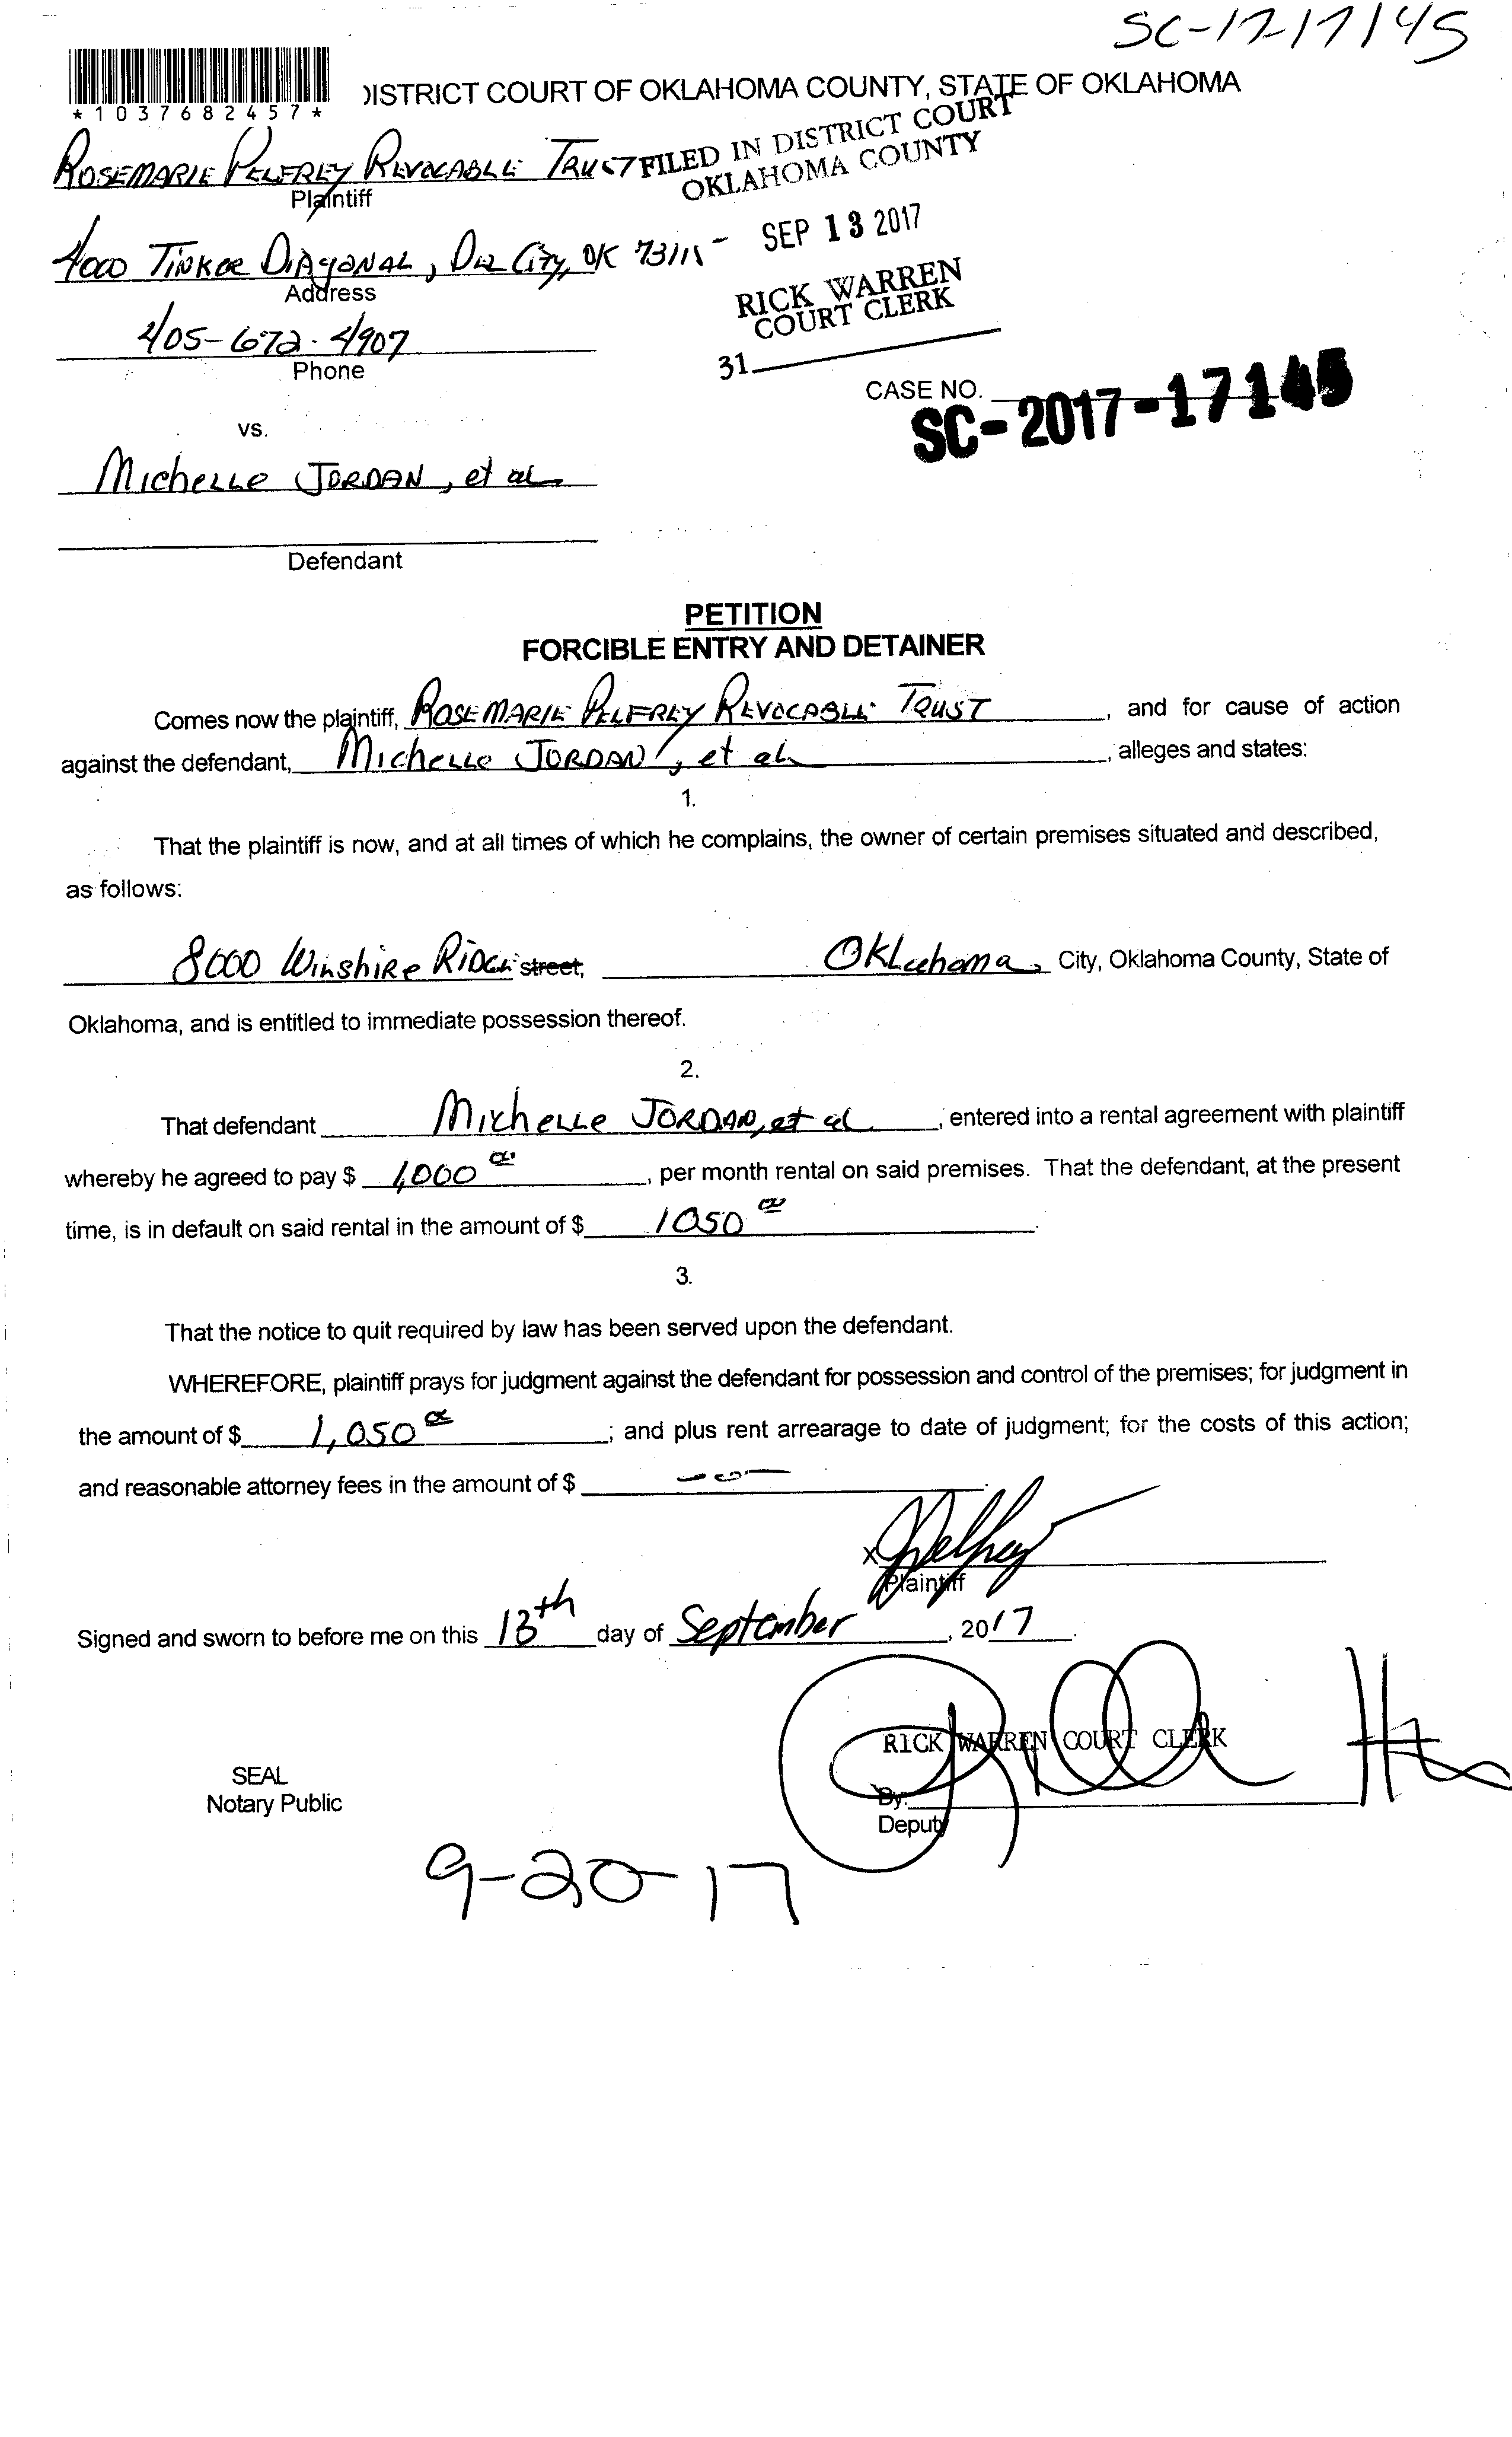 SC-17-17145
*1037682457*
DISTRICT COURT OF OKLAHOMA COUNTY, STATE OF OKLAHOMA
ROSEMARIE PELFREY REVOCABLE TRUST
Plaintiff
FILED IN DISTRICT COURT
OKLAHOMA COUNTY
4000 TINKER DIAGONAL, DEL CITY, OK 73115
Address
SEP 13 2017
RICK WARREN
COURT CLERK
405-672-4907
Phone
31
CASE NO.
SC-2017-17145
vs.
Michelle JORDAN, et al
Defendant
PETITION
FORCIBLE ENTRY AND DETAINER
Comes now the plaintiff, ROSEMARIE PELFREY REVOCABLE TRUST, and for cause of action
against the defendant, Michelle JORDAN, et al, alleges and states:
1.
That the plaintiff is now, and at all times of which he complains, the owner of certain premises situated and described,
as follows:
8000 Winshire RIDGE street, Oklahoma, City, Oklahoma County, State of
Oklahoma, and is entitled to immediate possession thereof.
2.
That defendant Michelle JORDAN, et al, entered into a rental agreement with plaintiff
whereby he agreed to pay $ 1,000 00, per month rental on said premises. That the defendant, at the present
time, is in default on said rental in the amount of $ 1050 00.
3.
That the notice to quit required by law has been served upon the defendant.
WHEREFORE, plaintiff prays for judgment against the defendant for possession and control of the premises; for judgment in
the amount of $ 1,050 00; and plus rent arrearage to date of judgment; for the costs of this action;
and reasonable attorney fees in the amount of $ -0-.
x Pelfrey
Plaintiff
Signed and sworn to before me on this 13th day of September, 2017.
RICK WARREN COURT CLERK
SEAL
Notary Public
By:
Deputy
9-20-17